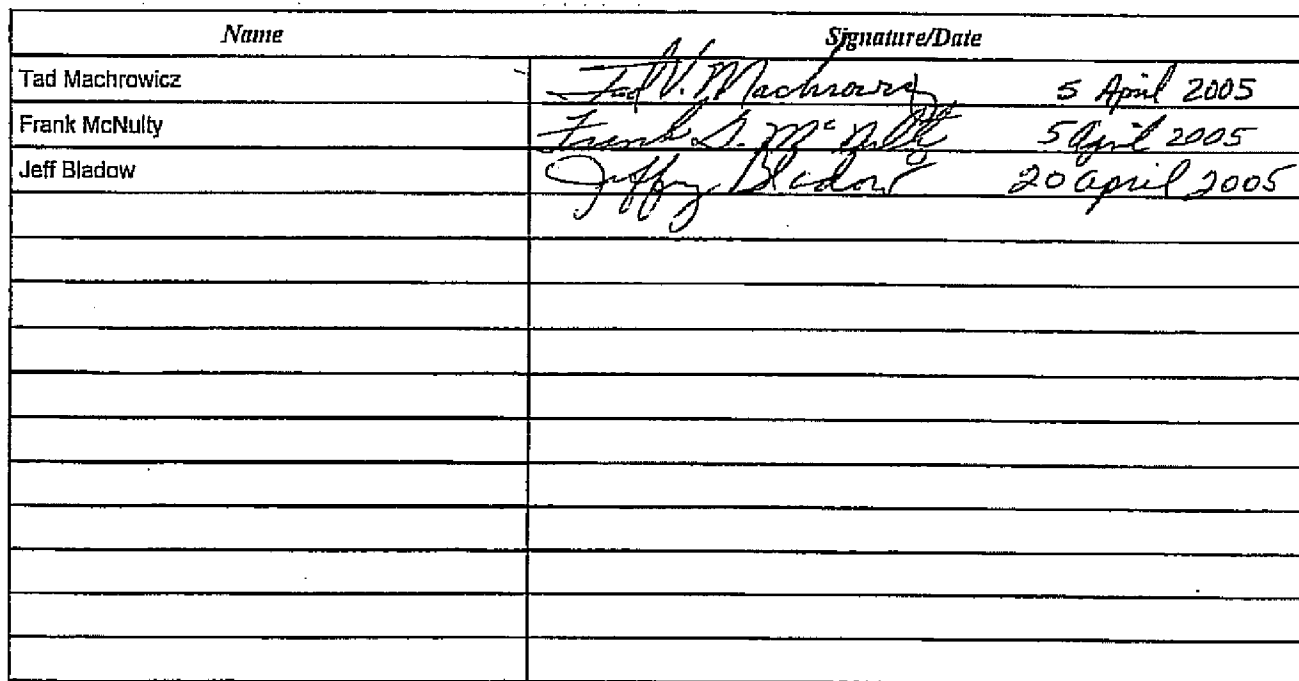 Name Signature/Date
Tad Machrowicz Tad V. Machrowicz 5 April 2005
Frank McNulty Frank S. McNulty 5 April 2005
Jeff Bladow Jeffry Bladow 20 april 2005